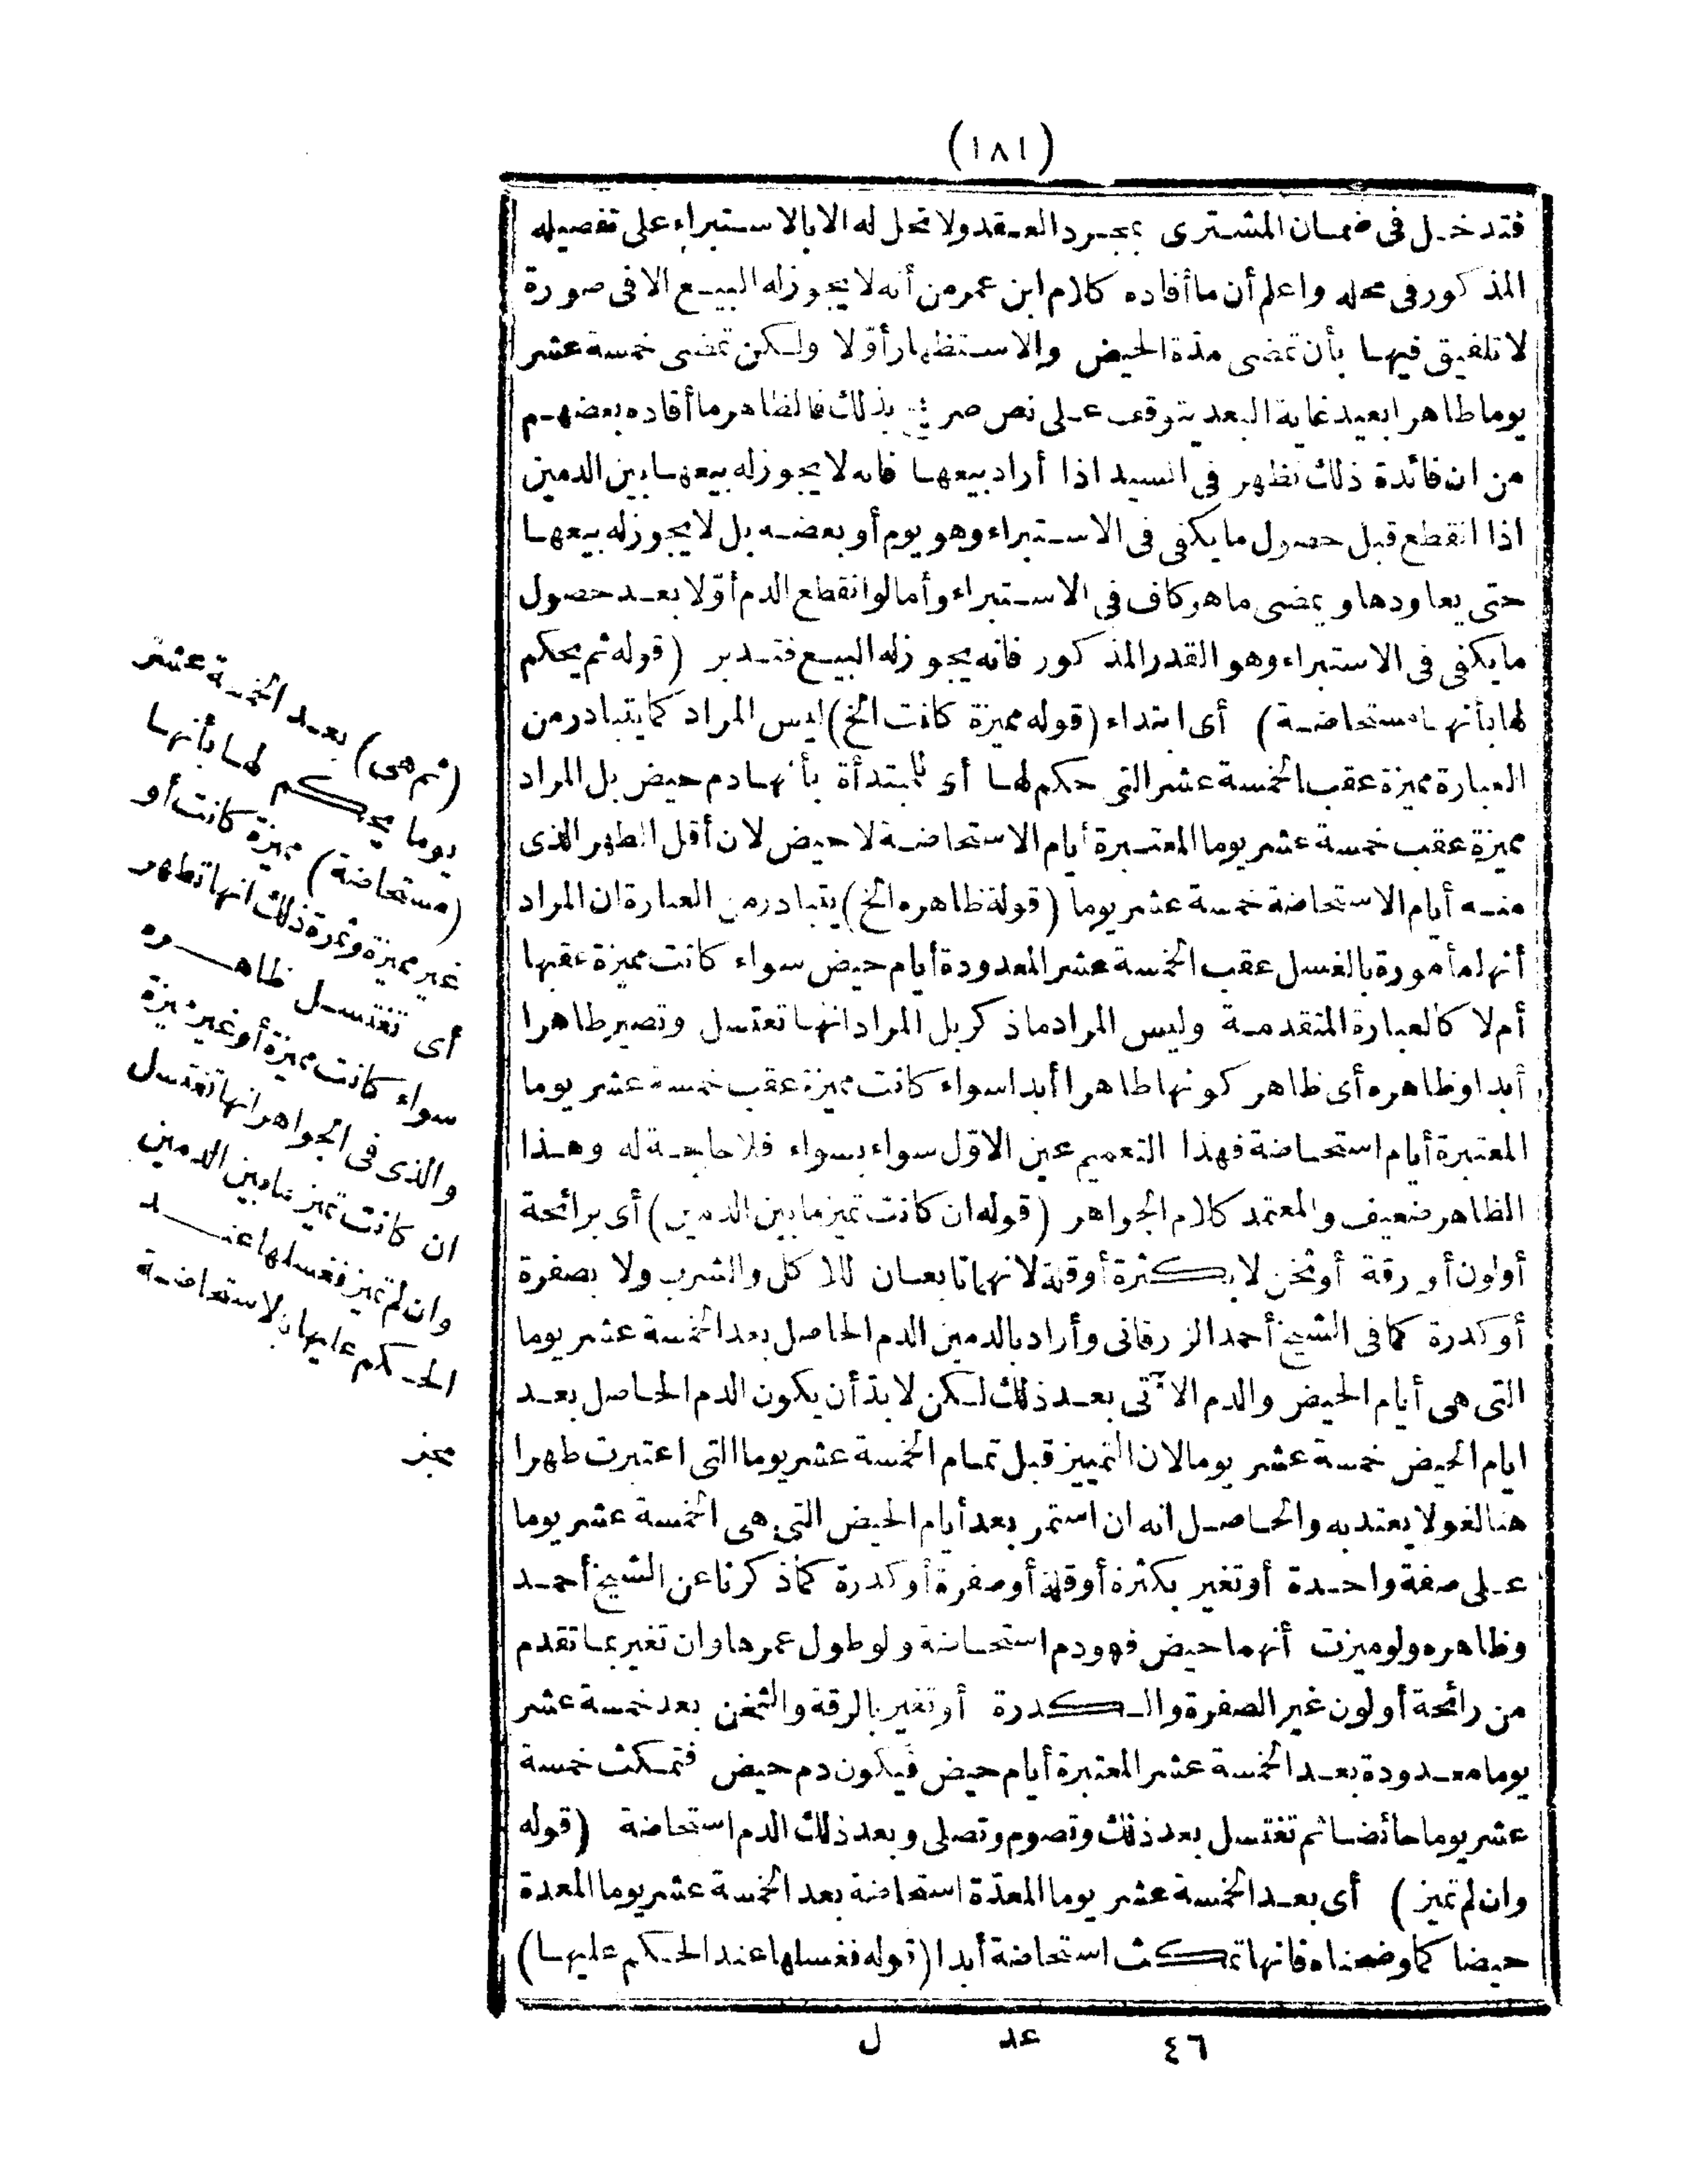 (١٨١)
فتدخل فى ضمان المشترى بمجرد العقد ولا تحل له الا بالاستبراء على تفصيله
المذكور فى محله واعلم أن ما أفاده كلام ابن عمر من أنه لا يجوز له البيع الا فى صورة
لا تلفيق فيها بأن تمضى مدة الحيض والاستظهار أوّلا ولكن تمضى خمسة عشر
يوما طاهرا بعيد غاية البعد يتوقف على نص صريح بذلك فالظاهر ما أفاده بعضهم
من ان فائدة ذلك تظهر فى السيد اذا أراد بيعها فانه لا يجوز له بيعها بين الدمين
اذا انقطع قبل حصول ما يكفى فى الاستبراء وهو يوم أو بعضه بل لا يجوز له بيعها
حتى يعاودها ويمضى ما هو كاف فى الاستبراء وأما لو انقطع الدم أوّلا بعد حصول
ما يكفى فى الاستبراء وهو القدر المذكور فانه يجوز له البيع فتدبر (قوله ثم يحكم
لها بأنها مستحاضة) أى ابتداء (قوله مميزة كانت الخ) ليس المراد كما يتبادر من
العبارة مميزة عقب الخمسة عشر التى حكم لها أى للمبتدأة بأنها دم حيض بل المراد
مميزة عقب خمسة عشر يوما المعتبرة أيام الاستحاضة لا حيض لان أقل الطهر الذى
منه أيام الاستحاضة خمسة عشر يوما (قوله ظاهره الخ) يتبادر من العبارة ان المراد
أنها مأمورة بالغسل عقب الخمسة عشر المعدودة أيام حيض سواء كانت مميزة عقبها
أم لا كالعبارة المتقدمة وليس المراد ما ذكر بل المراد انها تغتسل وتصير طاهرا
أبدا وظاهره أى ظاهر كونها طاهرا أبدا سواء كانت مميزة عقب خمسة عشر يوما
المعتبرة أيام استحاضة فهذا التعميم عين الاوّل سواء بسواء فلا حاجة له وهذا
الظاهر ضعيف والمعتمد كلام الجواهر (قوله ان كانت تميز ما بين الدمين) أى برائحة
أو لون أو رقة أو ثخن لا بكثرة أو قلة لانهما تابعان للاكل والشرب ولا بصفرة
أو كدرة كما فى الشيخ أحمد الزرقانى وأراد بالدمين الدم الحاصل بعد الخمسة عشر يوما
التى هى أيام الحيض والدم الآتى بعد ذلك لكن لا بدّ أن يكون الدم الحاصل بعد
ايام الحيض خمسة عشر يوما لان التمييز قبل تمام الخمسة عشر يوما التى اعتبرت طهرا
هنا لغو لا يعتد به والحاصل انه ان استمر بعد أيام الحيض التى هى الخمسة عشر يوما
على صفة واحدة أو تغير بكثرة أو قلة أو صفرة أو كدرة كما ذكرنا عن الشيخ أحمد
وظاهره ولو ميزت أنهما حيض فهو دم استحاضة ولو طول عمرها وان تغير بما تقدم
من رائحة أو لون غير الصفرة والكدرة أو تغير بالرقة والثخن بعد خمسة عشر
يوما معدودة بعد الخمسة عشر المعتبرة أيام حيض فيكون دم حيض فتمكث خمسة
عشر يوما حائضا ثم تغتسل بعد ذلك وتصوم وتصلى وبعد ذلك الدم استحاضة (قوله
وان لم تميز) أى بعد الخمسة عشر يوما المعدّة استحاضة بعد الخمسة عشر يوما المعدة
حيضا كما وضحناه فانها تمكث استحاضة أبدا (قوله فغسلها عند الحكم عليها)
(ثم هى) بعد الخمسة عشر
يوما يحكم لها بأنها
(مستحاضة) مميزة كانت أو
غير مميزة وثمرة ذلك انها تطهر
أى تغتسل ظاهره
سواء كانت مميزة أو غير مميزة
والذى فى الجواهر انها تغتسل
ان كانت تميز ما بين الدمين
وان لم تميز فغسلها عند
الحكم عليها بالاستحاضة
مجز
٤٦ عد ل